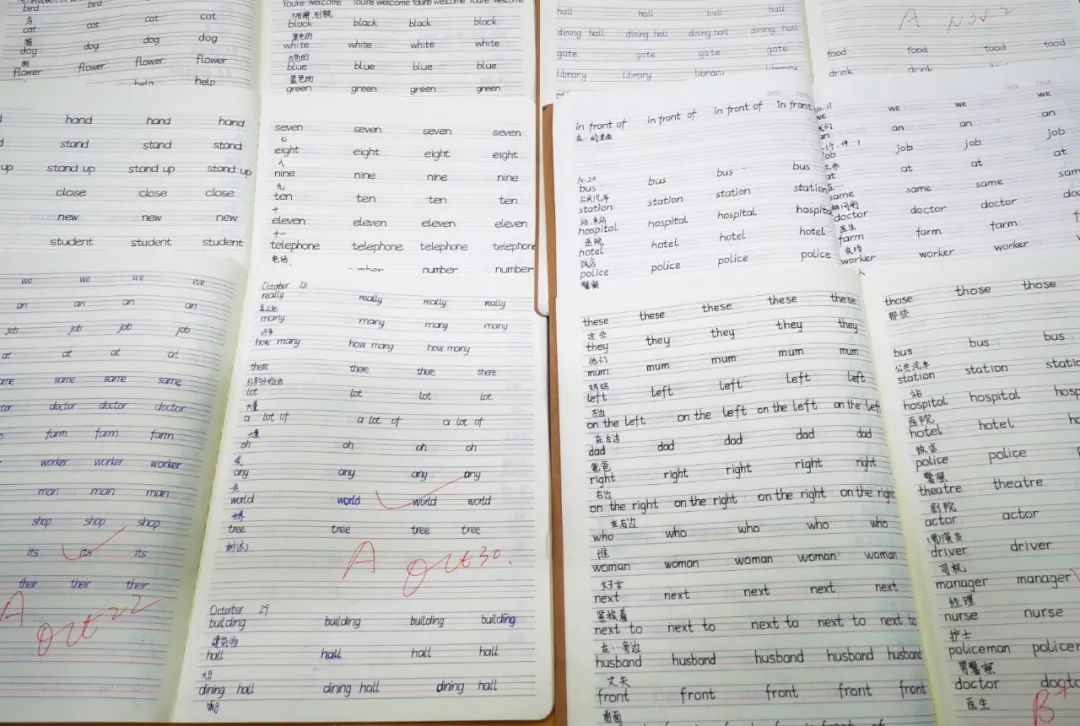 bird bird
鸟
cat cat cat
猫
dog dog dog
狗
flower flower flower
help help
hand hand hand
stand stand stand
up stand up stand up stand up
close close close
new new new
student student student
we we we we
an an an an
job job job job
at at at at
same same same
doctor doctor doctor
farm farm farm
worker worker worker
man man man
shop shop shop
its its its
their their their
A Oct 22
You're welcome You're welcome You're welcome
black black black
黑色的
white white white
白色的
blue blue blue
蓝色的
green green green
seven seven seven seven
七
eight eight eight eight
八
nine nine nine nine
九
ten ten ten ten
十
eleven eleven eleven eleven
十一
telephone telephone telephone telephone
电话
number number
October
really really really really
many many many many
许多
how many how many how many
there there there there
lot lot lot lot
大量
a lot of a lot of a lot of
大量
oh oh oh oh
any any any any
world world world world
世界
tree tree tree tree
A Oct 30.
Octorber 29
building building building building
建筑物
hall hall hall hall
大厅
dining hall dining hall dining hall
hall hall hall
dining hall dining hall dining hall dining hall
gate gate gate gate
library library library
in front of in front of in front of in front
bus bus bus bus
公共汽车
station station station station
hospital hospital hospital hospital
医院
hotel hotel hotel hotel
饭店
police police police police
警察
A Nov. 2
food food food food
drink drink
we we we
an an an
job job job
工作
at at at
same same same
相同的
doctor doctor doctor
医生
farm farm farm
农场
worker worker worker
these these these these
这些
they they they they
他们
mum mum mum mum
妈妈
left left left left
左边
on the left on the left on the left on the left
在左边
dad dad dad dad
爸爸
right right right right
右边
on the right on the right on the right on the right
在右边
who who who who
谁
woman woman woman woman
女士
next next next next
紧接着
next to next to next to next to next to
在…旁边
husband husband husband husband husband
丈夫
front front front front front
前面
those those those
那些
bus bus bus
公共汽车
station station station
站
hospital hospital
医院
hotel hotel
饭店
police police
警察
theatre theatre
剧院
actor actor
(男)演员
driver driver
司机
manager manager
经理
nurse nurse
护士
policeman
男警察
doctor
医生
B+